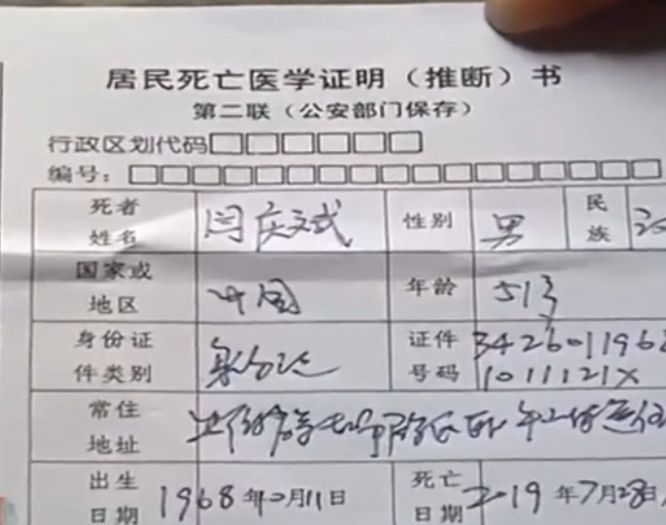 居民死亡医学证明（推断）书
第二联（公安部门保存）
行政区划代码
编号：
死者姓名 闫庆斌 性别 男 民族 汉
国家或地区 中国 年龄 51岁
身份证件类别 身份证 证件号码 3426011968
1011121X
常住地址
出生日期 1968年10月11日 死亡日期 2019年7月28日